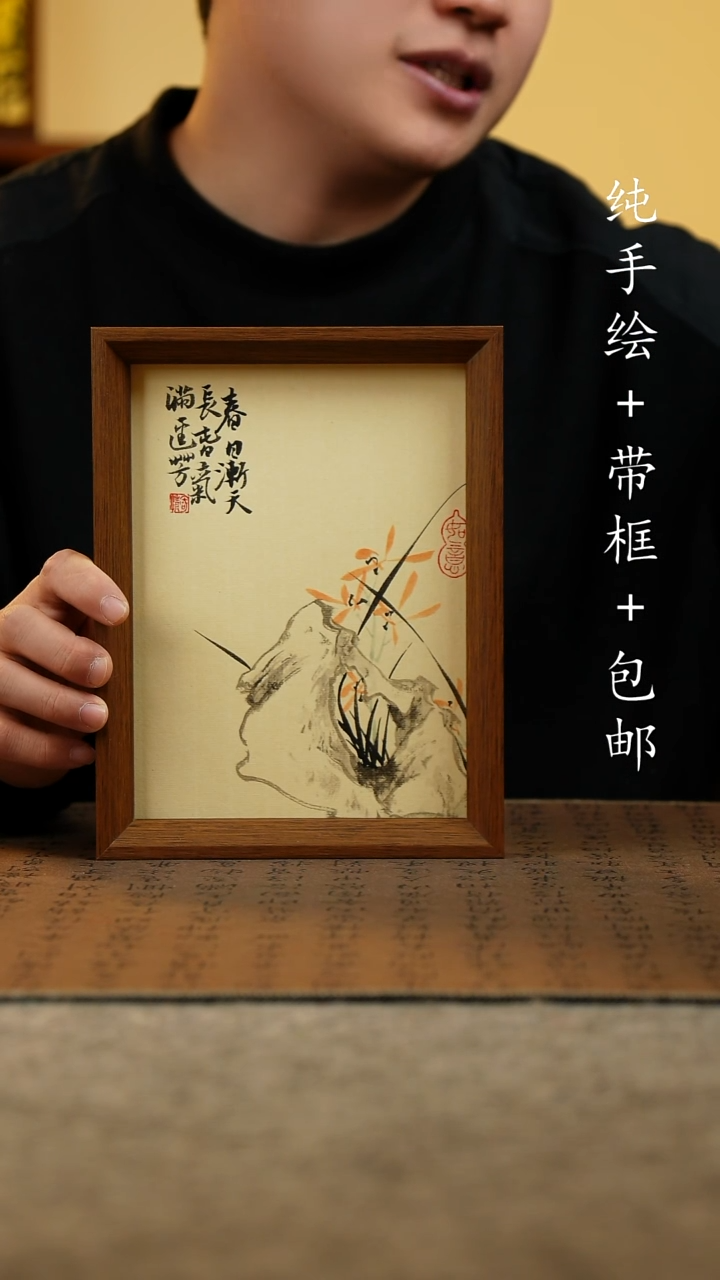 纯手绘+带框+包邮
春日漸天
長香氣
滿芳
如意